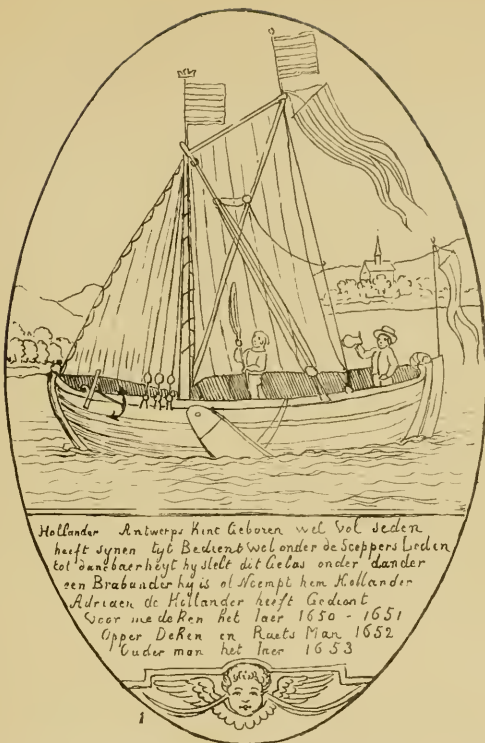 Hollander Antwerps Kint Geboren wel vol seden
heeft synen tyt Bedient wel onder de Sceppers Leden
tot dancbaerheyt hy stelt dit Gelas onder dander
een Brabander hy is al Neempt hem Hollander
Adriaen de Hollander heeft Gedient
Voor mede Ken het Iaer 1650 - 1651
Opper DeKen en Raets Man 1652
Ouder man het Iaer 1653
1